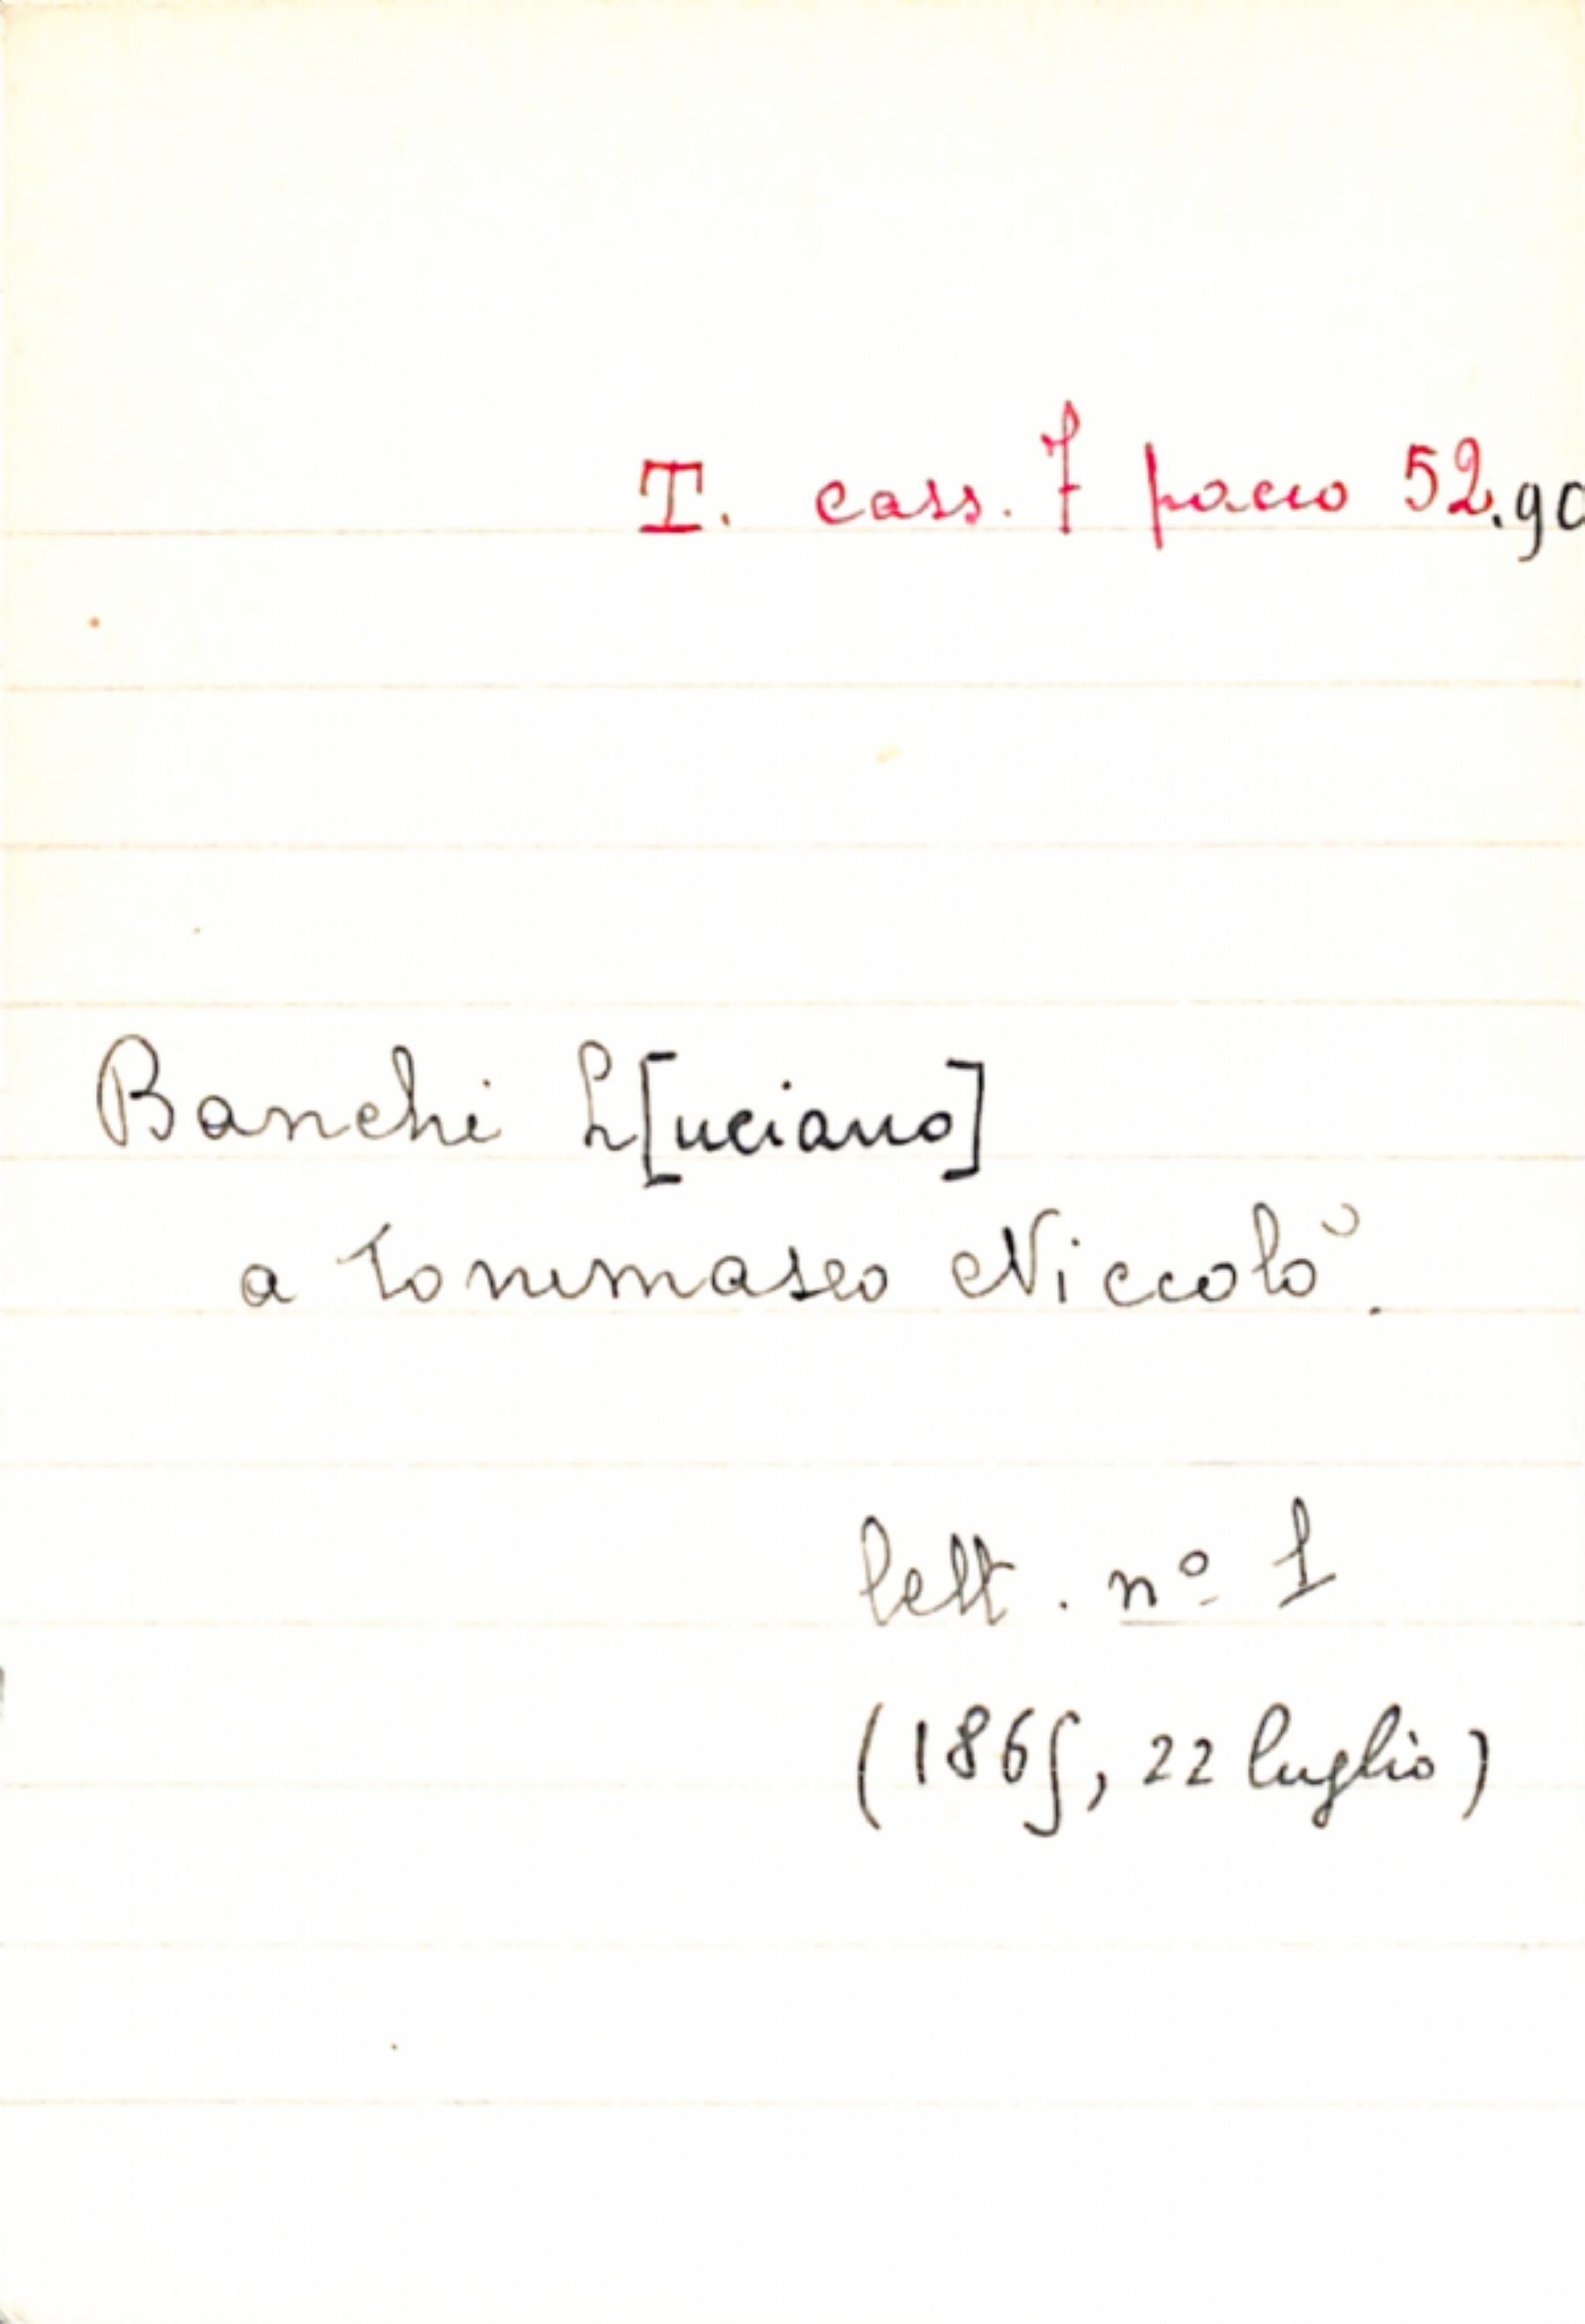 T. cass. 7 pacco 52.90
Banchi L[uciano]
a Tommaseo Niccolò.
lett. nº 1
(1865, 22 luglio)